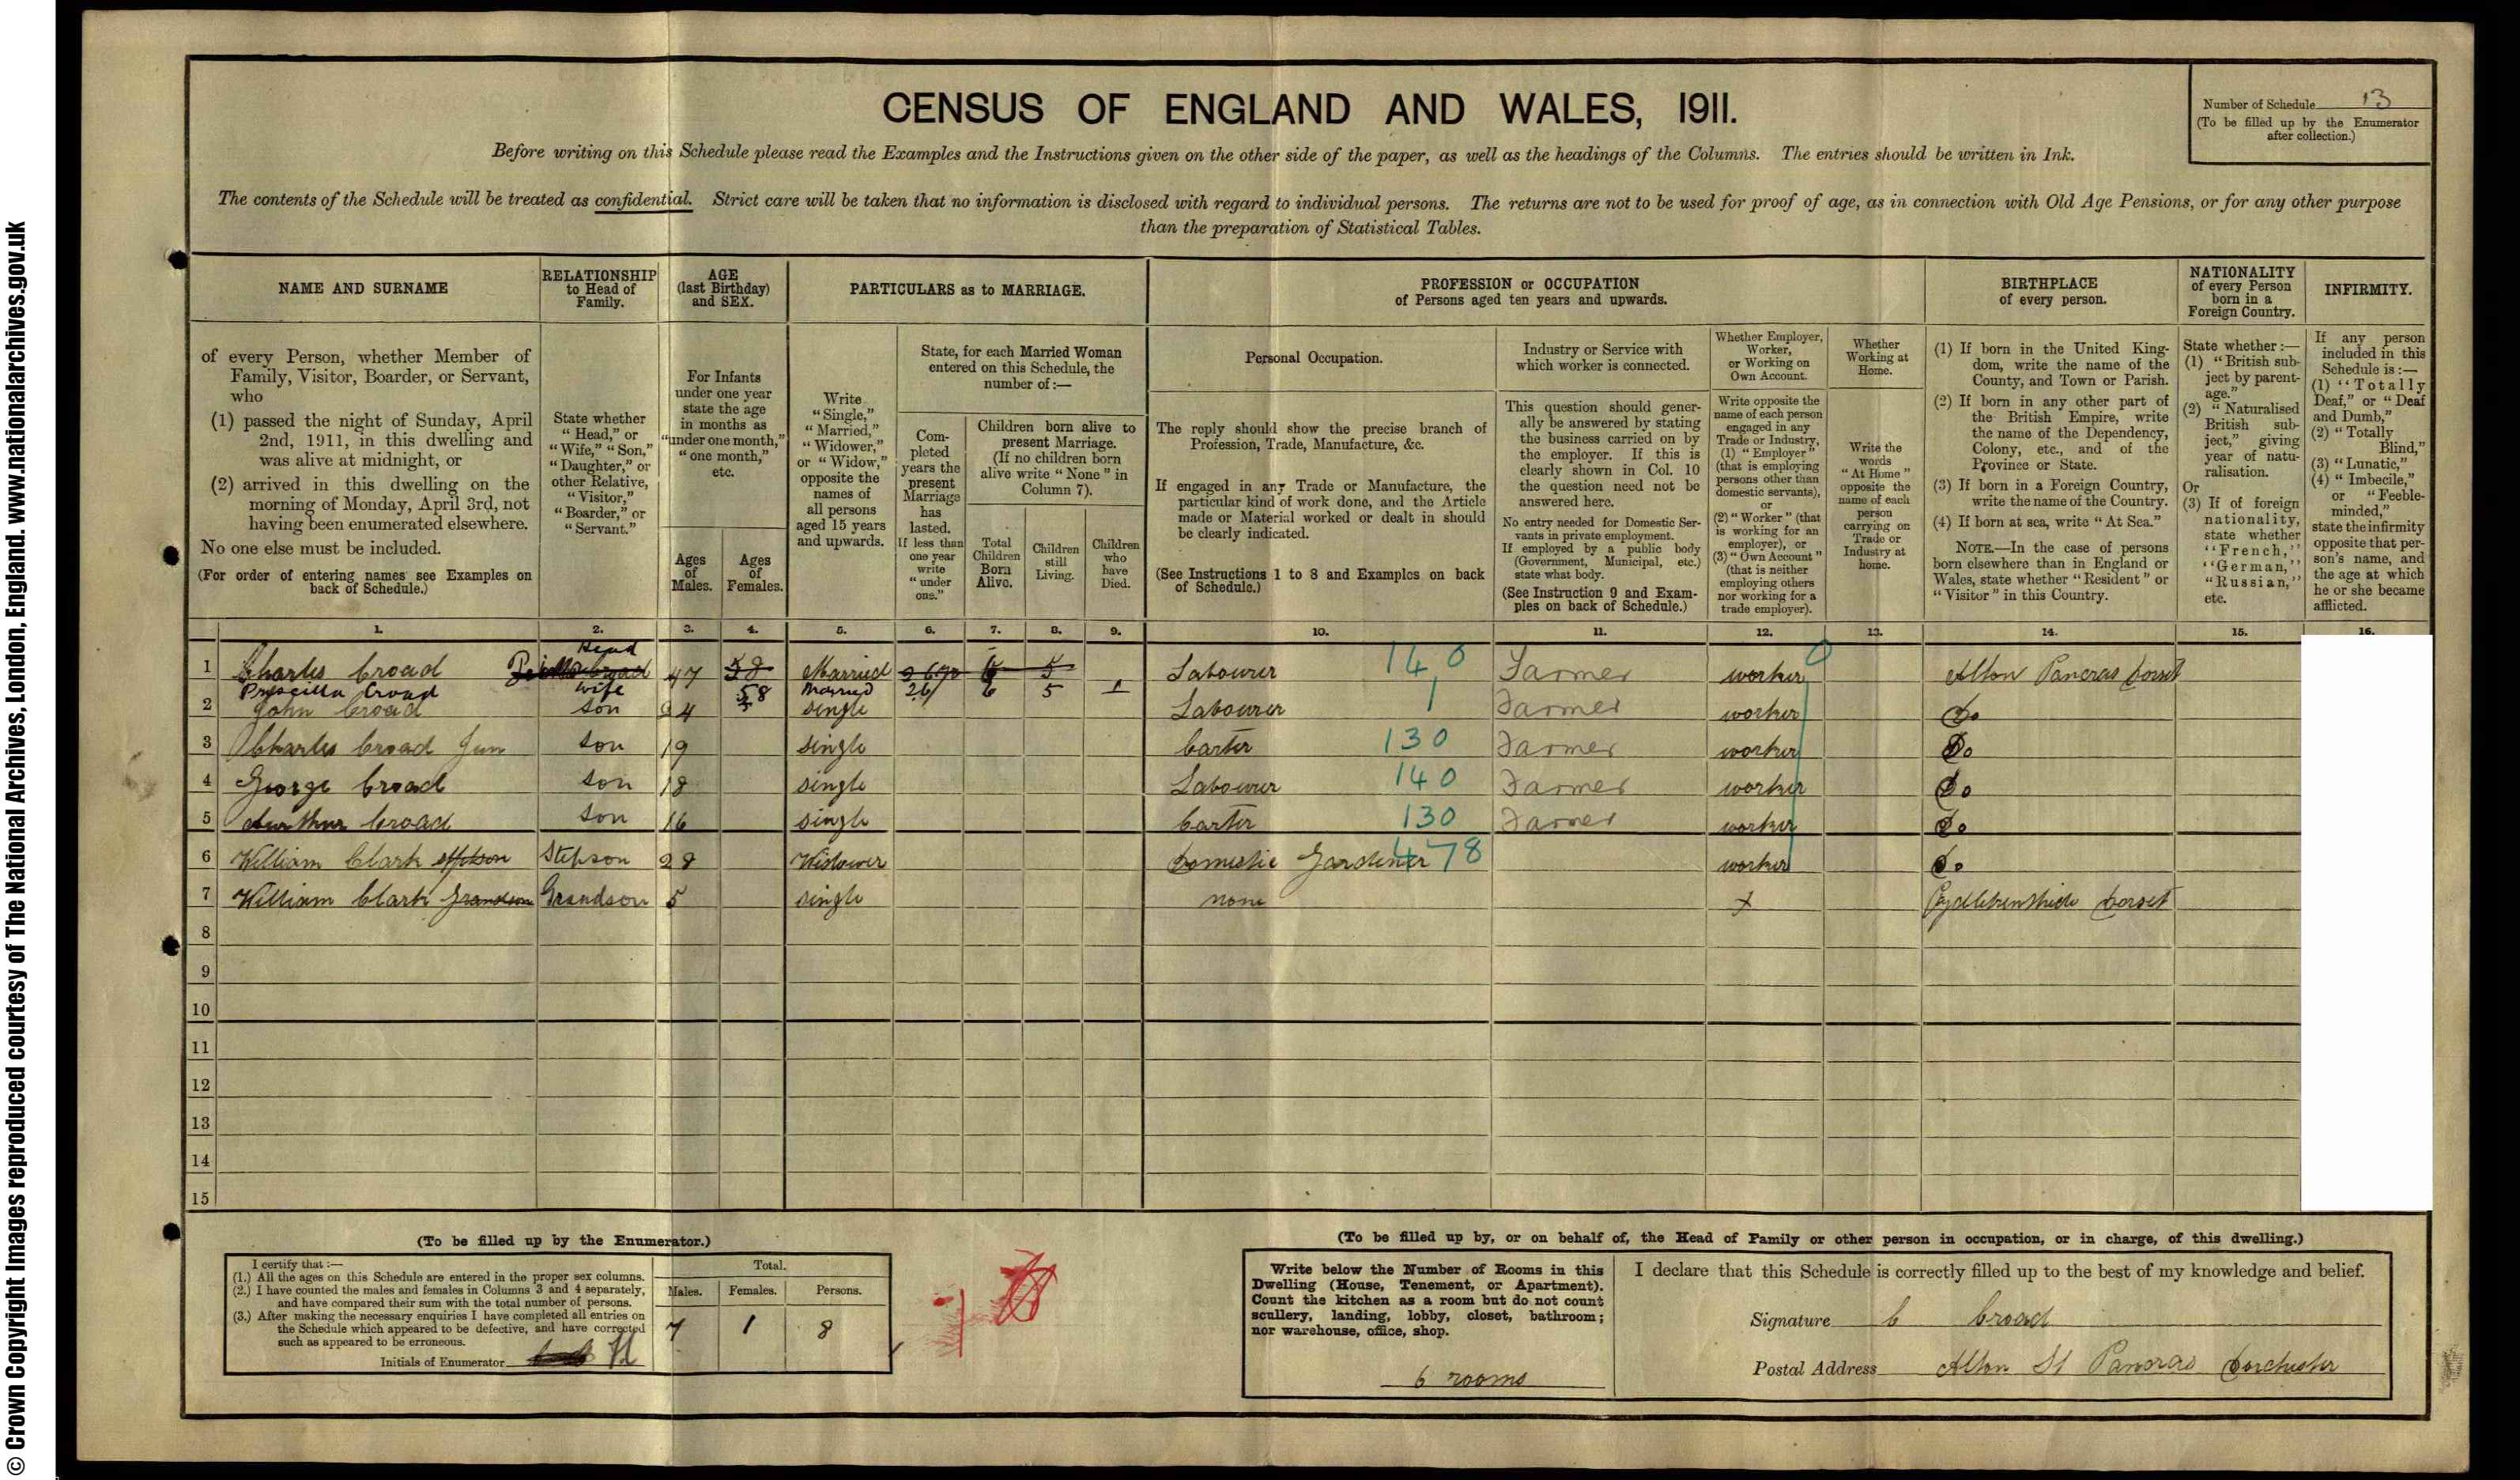 © Crown Copyright Images reproduced courtesy of The National Archives, London, England. www.nationalarchives.gov.uk
CENSUS OF ENGLAND AND WALES, 1911.
Number of Schedule 13
(To be filled up by the Enumerator
after collection.)
Before writing on this Schedule please read the Examples and the Instructions given on the other side of the paper, as well as the headings of the Columns. The entries should be written in Ink.
The contents of the Schedule will be treated as confidential. Strict care will be taken that no information is disclosed with regard to individual persons. The returns are not to be used for proof of age, as in connection with Old Age Pensions, or for any other purpose
than the preparation of Statistical Tables.
NAME AND SURNAME
of every Person, whether Member of
Family, Visitor, Boarder, or Servant,
who
(1) passed the night of Sunday, April
2nd, 1911, in this dwelling and
was alive at midnight, or
(2) arrived in this dwelling on the
morning of Monday, April 3rd, not
having been enumerated elsewhere.
No one else must be included.
(For order of entering names see Examples on
back of Schedule.)
RELATIONSHIP
to Head of
Family.
State whether
"Head," or
"Wife," "Son,"
"Daughter," or
other Relative,
"Visitor,"
"Boarder," or
"Servant."
AGE
(last Birthday)
and SEX.
For Infants
under one year
state the age
in months as
"under one month,"
"one month,"
etc.
Ages
of
Males.
Ages
of
Females.
PARTICULARS as to MARRIAGE.
Write
"Single,"
"Married,"
"Widower,"
or "Widow,"
opposite the
names of
all persons
aged 15 years
and upwards.
State, for each Married Woman
entered on this Schedule, the
number of :—
Com-
pleted
years the
present
Marriage
has
lasted.
If less than
one year
write
"under
one."
Children born alive to
present Marriage.
(If no children born
alive write "None" in
Column 7).
Total
Children
Born
Alive.
Children
still
Living.
Children
who
have
Died.
PROFESSION or OCCUPATION
of Persons aged ten years and upwards.
Personal Occupation.
The reply should show the precise branch of
Profession, Trade, Manufacture, &c.
If engaged in any Trade or Manufacture, the
particular kind of work done, and the Article
made or Material worked or dealt in should
be clearly indicated.
(See Instructions 1 to 8 and Examples on back
of Schedule.)
Industry or Service with
which worker is connected.
This question should gener-
ally be answered by stating
the business carried on by
the employer. If this is
clearly shown in Col. 10
the question need not be
answered here.
No entry needed for Domestic Ser-
vants in private employment.
If employed by a public body
(Government, Municipal, etc.)
state what body.
(See Instruction 9 and Exam-
ples on back of Schedule.)
Whether Employer,
Worker,
or Working on
Own Account.
Write opposite the
name of each person
engaged in any
Trade or Industry,
(1) "Employer"
(that is employing
persons other than
domestic servants),
or
(2) "Worker" (that
is working for an
employer), or
(3) "Own Account"
(that is neither
employing others
nor working for a
trade employer).
Whether
Working at
Home.
Write the
words
"At Home"
opposite the
name of each
person
carrying on
Trade or
Industry at
home.
BIRTHPLACE
of every person.
(1) If born in the United King-
dom, write the name of the
County, and Town or Parish.
(2) If born in any other part of
the British Empire, write
the name of the Dependency,
Colony, etc., and of the
Province or State.
(3) If born in a Foreign Country,
write the name of the Country.
(4) If born at sea, write "At Sea."
NOTE.—In the case of persons
born elsewhere than in England or
Wales, state whether "Resident" or
"Visitor" in this Country.
NATIONALITY
of every Person
born in a
Foreign Country.
State whether :—
(1) "British sub-
ject by parent-
age."
(2) "Naturalised
British sub-
ject," giving
year of natu-
ralisation.
Or
(3) If of foreign
nationality,
state whether
"French,"
"German,"
"Russian,"
etc.
INFIRMITY.
If any person
included in this
Schedule is :—
(1) "Totally
Deaf," or "Deaf
and Dumb,"
(2) "Totally
Blind,"
(3) "Lunatic,"
(4) "Imbecile,"
or "Feeble-
minded,"
state the infirmity
opposite that per-
son's name, and
the age at which
he or she became
afflicted.
1. 2. 3. 4. 5. 6. 7. 8. 9. 10. 11. 12. 13. 14. 15. 16.
1 Charles Croad Head 47 58 Married 6 5 Labourer 140 Farmer worker 0 Alton Pancras Dorset
Priscilla Croad wife 58 Married 26 6 5 1
2 John Croad son 24 single Labourer 1 Farmer worker Do
3 Charles Croad Jun son 19 single Carter 130 Farmer worker Do
4 George Croad son 18 single Labourer 140 Farmer worker Do
5 Aurthur Croad son 16 single Carter 130 Farmer worker Do
6 William Clark Stepson 28 Widower Domestic Gardener 478 worker Do
7 William Clark Grandson Grandson 5 single none x Dorset
8
9
10
11
12
13
14
15
(To be filled up by the Enumerator.)
I certify that :—
(1.) All the ages on this Schedule are entered in the proper sex columns.
(2.) I have counted the males and females in Columns 3 and 4 separately,
and have compared their sum with the total number of persons.
(3.) After making the necessary enquiries I have completed all entries on
the Schedule which appeared to be defective, and have corrected
such as appeared to be erroneous.
Initials of Enumerator
Total.
Males. Females. Persons.
7 1 8
(To be filled up by, or on behalf of, the Head of Family or other person in occupation, or in charge, of this dwelling.)
Write below the Number of Rooms in this
Dwelling (House, Tenement, or Apartment).
Count the kitchen as a room but do not count
scullery, landing, lobby, closet, bathroom ;
nor warehouse, office, shop.
6 rooms
I declare that this Schedule is correctly filled up to the best of my knowledge and belief.
Signature C Croad
Postal Address Alton St Pancras Dorchester